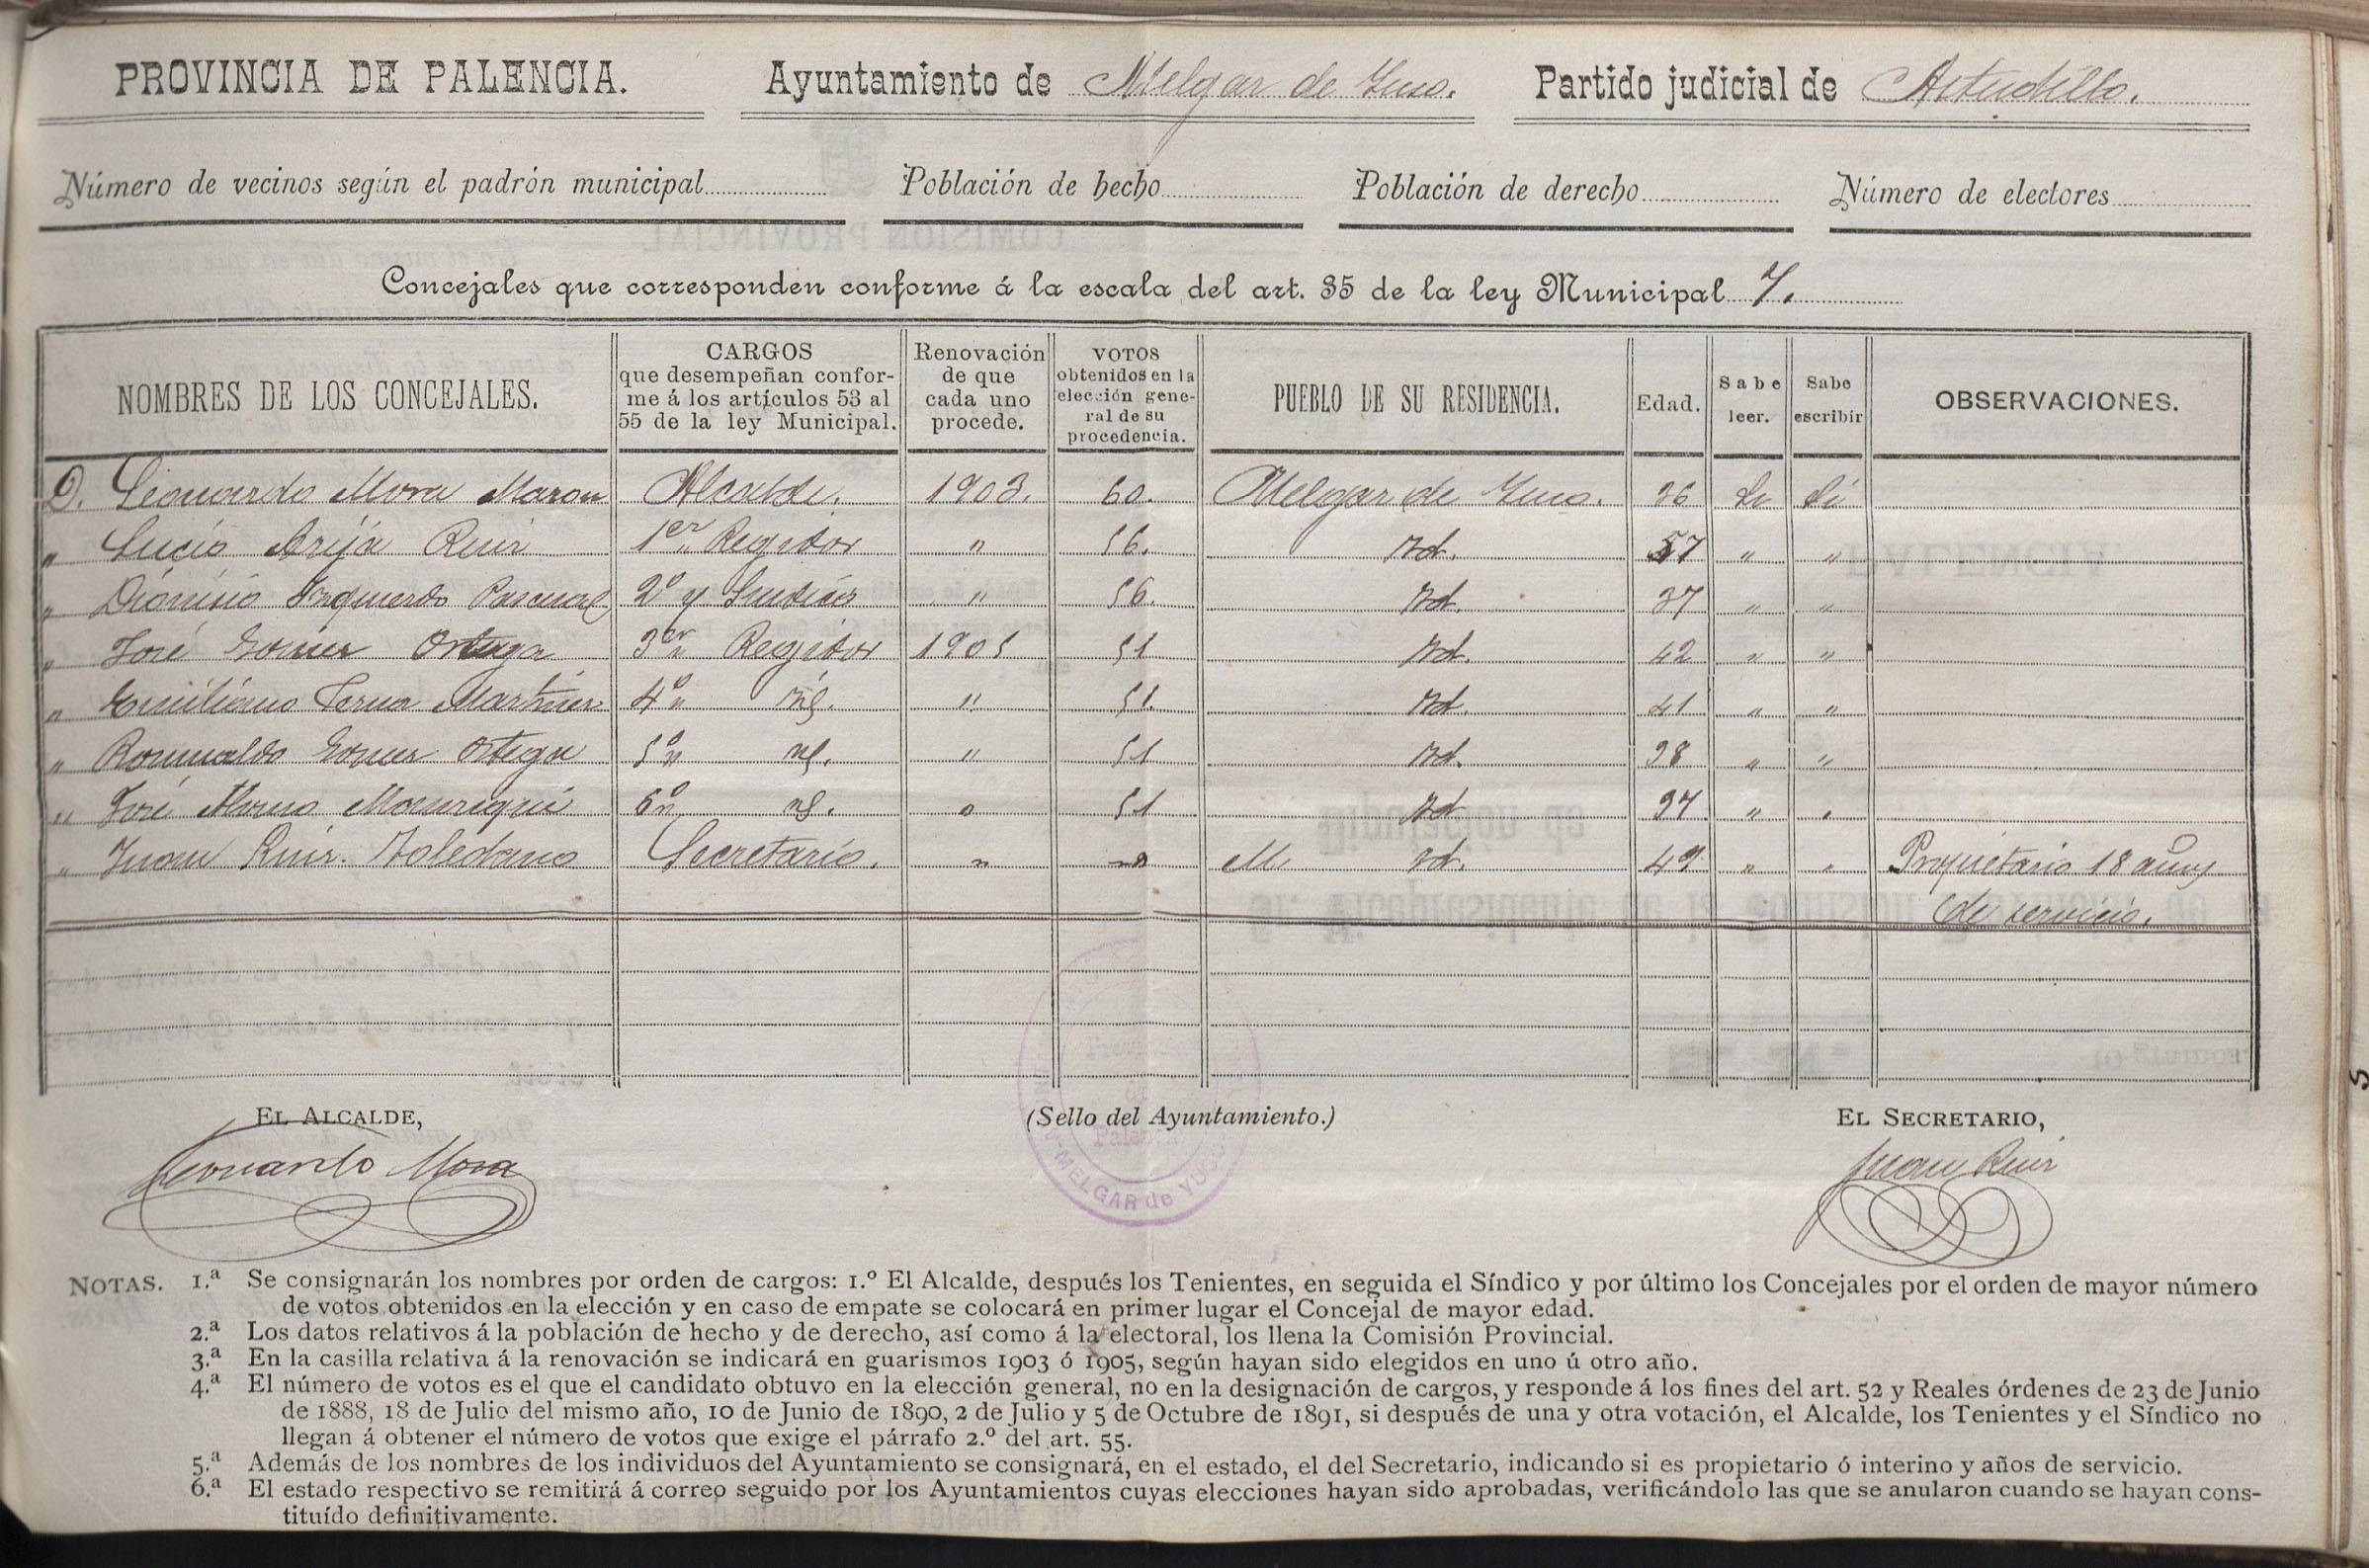 PROVINCIA DE PALENCIA. Ayuntamiento de Melgar de Yuso. Partido judicial de Astudillo.
Número de vecinos según el padrón municipal Población de hecho Población de derecho Número de electores
Concejales que corresponden conforme á la escala del art. 35 de la ley Municipal 7.
NOMBRES DE LOS CONCEJALES. CARGOS que desempeñan conforme á los artículos 53 al 55 de la ley Municipal. Renovación de que cada uno procede. VOTOS obtenidos en la elección general de su procedencia. PUEBLO DE SU RESIDENCIA. Edad. Sabe leer. Sabe escribir OBSERVACIONES.
D. Leonardo Mora Alcalde. 1903. 60. Melgar de Yuso. 36 Si Si
" Lucio Arija Ruiz 1er Regidor " 56. Id. 57 " "
" Dionisio Izquierdo Pascual 2º y Sindico " 56. Id. 37 " "
" José Gomez Ortega 3er Regidor 1905 51 Id. 42 " "
" Emiliano Martinez 4º " id. " 51. Id. 41 " "
" Romualdo Gomez Ortega 5º " id. " 51 Id. 38 " "
" José Alonso Manrique 6º " id. " 51 Id 37 " "
" Juan Ruiz Toledano Secretario. " " id. 49 " " Propietario 18 años
de servicio.
EL ALCALDE, (Sello del Ayuntamiento.) EL SECRETARIO,
Leonardo Mora MELGAR de YUSO Juan Ruiz
NOTAS. 1.ª Se consignarán los nombres por orden de cargos: 1.º El Alcalde, después los Tenientes, en seguida el Síndico y por último los Concejales por el orden de mayor número
de votos obtenidos en la elección y en caso de empate se colocará en primer lugar el Concejal de mayor edad.
2.ª Los datos relativos á la población de hecho y de derecho, así como á la electoral, los llena la Comisión Provincial.
3.ª En la casilla relativa á la renovación se indicará en guarismos 1903 ó 1905, según hayan sido elegidos en uno ú otro año.
4.ª El número de votos es el que el candidato obtuvo en la elección general, no en la designación de cargos, y responde á los fines del art. 52 y Reales órdenes de 23 de Junio
de 1888, 18 de Julio del mismo año, 10 de Junio de 1890, 2 de Julio y 5 de Octubre de 1891, si después de una y otra votación, el Alcalde, los Tenientes y el Síndico no
llegan á obtener el número de votos que exige el párrafo 2.º del art. 55.
5.ª Además de los nombres de los individuos del Ayuntamiento se consignará, en el estado, el del Secretario, indicando si es propietario ó interino y años de servicio.
6.ª El estado respectivo se remitirá á correo seguido por los Ayuntamientos cuyas elecciones hayan sido aprobadas, verificándolo las que se anularon cuando se hayan cons-
tituído definitivamente.